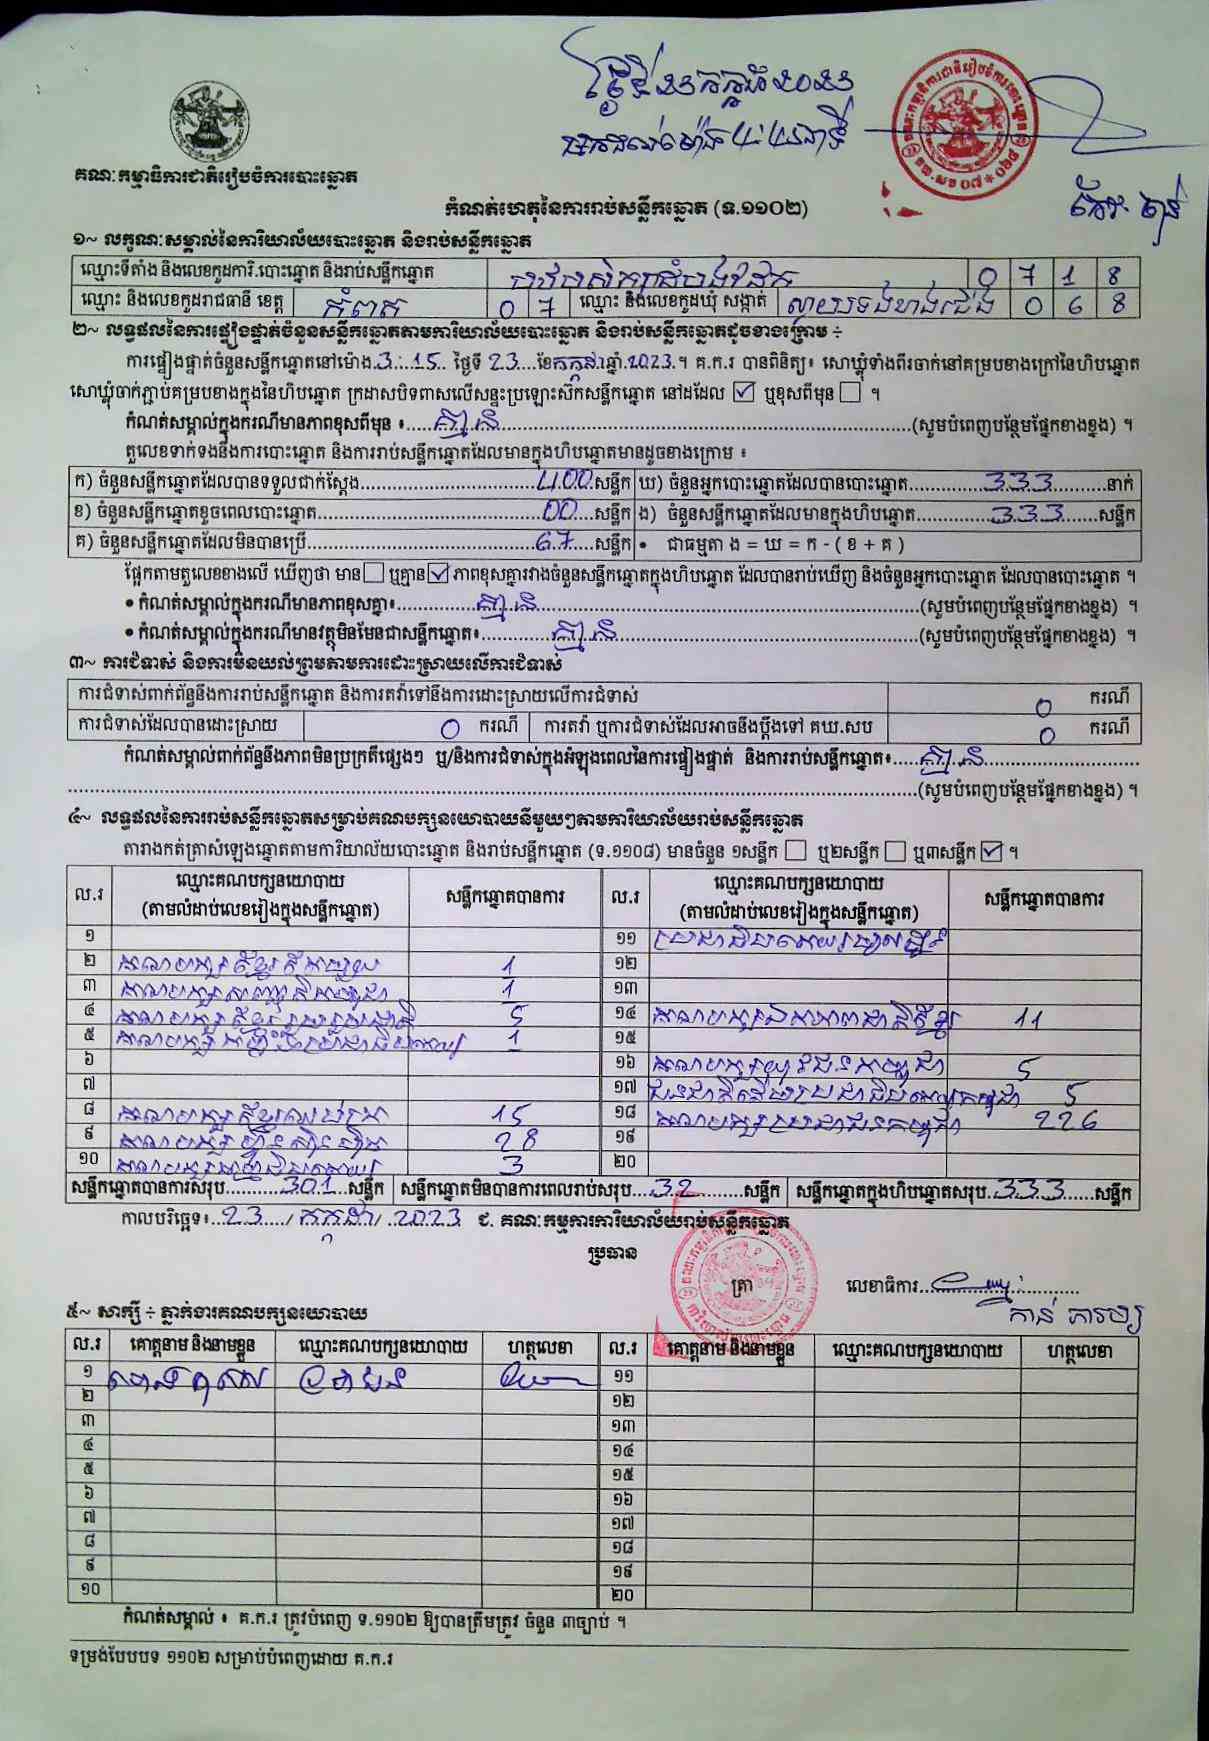 គណៈកម្មាធិការជាតិរៀបចំការបោះឆ្នោត
កំណត់ហេតុនៃការរាប់សន្លឹកឆ្នោត (ទ.១១០២)
១~ លក្ខណៈសម្គាល់នៃការិយាល័យបោះឆ្នោត និងរាប់សន្លឹកឆ្នោត
ឈ្មោះទីតាំង និងលេខកូដការិ.បោះឆ្នោត និងរាប់សន្លឹកឆ្នោត 0 7 1 8
ឈ្មោះ និងលេខកូដរាជធានី ខេត្ត កំពត 0 7 ឈ្មោះ និងលេខកូដឃុំ សង្កាត់ 0 6 8
២~ លទ្ធផលនៃការផ្ទៀងផ្ទាត់ចំនួនសន្លឹកឆ្នោតតាមការិយាល័យបោះឆ្នោត និងរាប់សន្លឹកឆ្នោតដូចខាងក្រោម ÷
ការផ្ទៀងផ្ទាត់ចំនួនសន្លឹកឆ្នោតនៅម៉ោង 3:15 ថ្ងៃទី 23 ខែកក្កដា ឆ្នាំ 2023 ។ គ.ក.រ បានពិនិត្យ៖ សោឃ្លុំទាំងពីរចាក់នៅគម្របខាងក្រៅនៃហិបឆ្នោត
សោឃ្លុំចាក់ភ្ជាប់គម្របខាងក្នុងនៃហិបឆ្នោត ក្រដាសបិទពាសលើសន្ទះប្រឡោះស៊កសន្លឹកឆ្នោត នៅដដែល ☑ ឬខុសពីមុន ☐ ។
កំណត់សម្គាល់ក្នុងករណីមានភាពខុសពីមុន ៖ គ្មាន (សូមបំពេញបន្ថែមផ្នែកខាងខ្នង) ។
តួលេខទាក់ទងនឹងការបោះឆ្នោត និងការរាប់សន្លឹកឆ្នោតដែលមានក្នុងហិបឆ្នោតមានដូចខាងក្រោម ៖
ក) ចំនួនសន្លឹកឆ្នោតដែលបានទទួលជាក់ស្តែង 400 សន្លឹក ឃ) ចំនួនអ្នកបោះឆ្នោតដែលបានបោះឆ្នោត 333 នាក់
ខ) ចំនួនសន្លឹកឆ្នោតខូចពេលបោះឆ្នោត 00 សន្លឹក ង) ចំនួនសន្លឹកឆ្នោតដែលមានក្នុងហិបឆ្នោត 333 សន្លឹក
គ) ចំនួនសន្លឹកឆ្នោតដែលមិនបានប្រើ 67 សន្លឹក • ជាធម្មតា ង = ឃ = ក - ( ខ + គ )
ផ្អែកតាមតួលេខខាងលើ ឃើញថា មាន ☐ ឬគ្មាន ☑ ភាពខុសគ្នារវាងចំនួនសន្លឹកឆ្នោតក្នុងហិបឆ្នោត ដែលបានរាប់ឃើញ និងចំនួនអ្នកបោះឆ្នោត ដែលបានបោះឆ្នោត ។
• កំណត់សម្គាល់ក្នុងករណីមានភាពខុសគ្នា៖ គ្មាន (សូមបំពេញបន្ថែមផ្នែកខាងខ្នង) ។
• កំណត់សម្គាល់ក្នុងករណីមានវត្ថុមិនមែនជាសន្លឹកឆ្នោត៖ គ្មាន (សូមបំពេញបន្ថែមផ្នែកខាងខ្នង) ។
៣~ ការជំទាស់ និងការមិនយល់ព្រមតាមការដោះស្រាយលើការជំទាស់
ការជំទាស់ពាក់ព័ន្ធនឹងការរាប់សន្លឹកឆ្នោត និងការតវ៉ាទៅនឹងការដោះស្រាយលើការជំទាស់ 0 ករណី
ការជំទាស់ដែលបានដោះស្រាយ 0 ករណី ការតវ៉ា ឬការជំទាស់ដែលអាចនឹងប្តឹងទៅ គឃ.សប 0 ករណី
កំណត់សម្គាល់ពាក់ព័ន្ធនឹងភាពមិនប្រក្រតីផ្សេងៗ ឬ/និងការជំទាស់ក្នុងអំឡុងពេលនៃការផ្ទៀងផ្ទាត់ និងការរាប់សន្លឹកឆ្នោត៖ គ្មាន
(សូមបំពេញបន្ថែមផ្នែកខាងខ្នង) ។
៤~ លទ្ធផលនៃការរាប់សន្លឹកឆ្នោតសម្រាប់គណបក្សនយោបាយនីមួយៗតាមការិយាល័យរាប់សន្លឹកឆ្នោត
តារាងកត់ត្រាសំឡេងឆ្នោតតាមការិយាល័យបោះឆ្នោត និងរាប់សន្លឹកឆ្នោត (ទ.១១០៨) មានចំនួន ១សន្លឹក ☐ ឬ២សន្លឹក ☐ ឬ៣សន្លឹក ☑ ។
ល.រ ឈ្មោះគណបក្សនយោបាយ (តាមលំដាប់លេខរៀងក្នុងសន្លឹកឆ្នោត) សន្លឹកឆ្នោតបានការ ល.រ ឈ្មោះគណបក្សនយោបាយ (តាមលំដាប់លេខរៀងក្នុងសន្លឹកឆ្នោត) សន្លឹកឆ្នោតបានការ
១ ១១
២ 1 ១២
៣ 1 ១៣
៤ គណបក្សខ្មែររួបរួមជាតិ 5 ១៤ 11
៥ 1 ១៥
៦ ១៦ គណបក្សយុវជនកម្ពុជា 5
៧ ១៧ 5
៨ 15 ១៨ គណបក្សប្រជាជនកម្ពុជា 226
៩ គណបក្សហ្វ៊ុនស៊ិនប៉ិច 28 ១៩
១០ 3 ២០
សន្លឹកឆ្នោតបានការសរុប 301 សន្លឹក សន្លឹកឆ្នោតមិនបានការពេលរាប់សរុប 32 សន្លឹក សន្លឹកឆ្នោតក្នុងហិបឆ្នោតសរុប 333 សន្លឹក
កាលបរិច្ឆេទ៖ 23 / កក្កដា / 2023 ជ. គណៈកម្មការការិយាល័យរាប់សន្លឹកឆ្នោត
ប្រធាន
ត្រា លេខាធិការ
៥~ សាក្សី ÷ ភ្នាក់ងារគណបក្សនយោបាយ
ល.រ គោត្តនាម និងនាមខ្លួន ឈ្មោះគណបក្សនយោបាយ ហត្ថលេខា ល.រ គោត្តនាម និងនាមខ្លួន ឈ្មោះគណបក្សនយោបាយ ហត្ថលេខា
១ ១១
២ ១២
៣ ១៣
៤ ១៤
៥ ១៥
៦ ១៦
៧ ១៧
៨ ១៨
៩ ១៩
១០ ២០
កំណត់សម្គាល់ ៖ គ.ក.រ ត្រូវបំពេញ ទ.១១០២ ឱ្យបានត្រឹមត្រូវ ចំនួន ៣ច្បាប់ ។
ទម្រង់បែបបទ ១១០២ សម្រាប់បំពេញដោយ គ.ក.រ